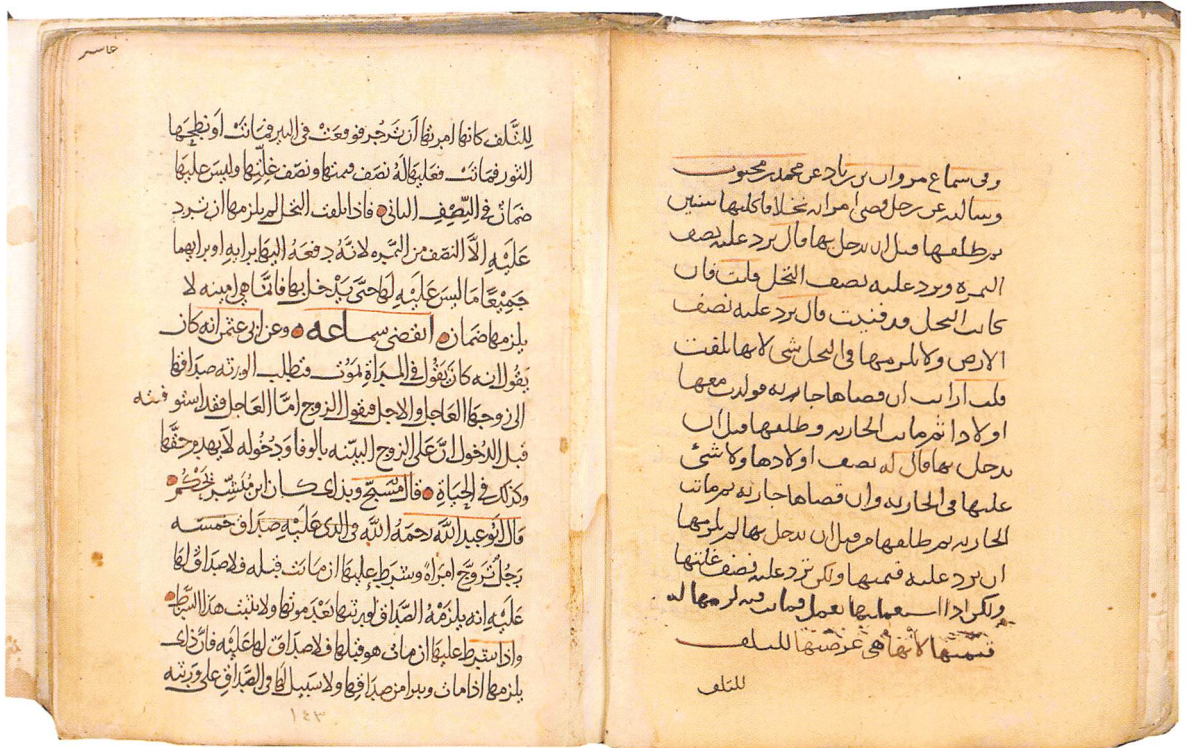 وفي سماع مروان بن زياد عن محمد بن محبوب
وسالته عن رجل قضى امراته نخلا فاكلتها سنين
ثم طلقها قبل ان يدخل بها قال يرد عليه نصف
الثمرة ويرد عليه نصف النخل قلت فان
كانت النخل قد فنيت قال يرد عليه نصف
الارض ولا يلزمها في النخل شي لانها تلفت
قلت ارايت ان قضاها جارية فولدت معها
اولادا ثم ماتت الجارية وطلقها قبل ان
يدخل بها قال له نصف اولادها ولا شئ
عليها في الجارية وان قضاها جارية ثم ماتت
الجارية ثم طلقها من قبل ان يدخل بها لم يلزمها
ان يرد عليه قيمتها ولكن ترد عليه نصف غلتها
ولكن اذا استعملتها بعمل فماتت فيه لزمها له
قيمتها لانها هي عرضتها للتلف
للتلف
للتلف كانها امرتها ان تزجر فوقعت في البير فماتت او نطحها
الثور فماتت فعليها له نصف قيمتها ونصف غلتها وليس عليها
ضمان في النصف الباقي فاذا تلفت النخل لم يلزمها ان ترد
عليه الا النصف من الثمرة لانه دفعه اليها برايه او برايهما
جميعا ما ليس عليه لها حتى يدخل بها فانما هي امينه لا
يلزمها ضمان انقضى سماعه وعن ابي عثمن انه كان
يقول انه كان يقول في المراة تموت فتطلب الورثه صداقها
الى زوجها العاجل والاجل فيقول الزوج اما العاجل فقد استوفته
قبل الدخول ان على الزوج البينه بالوفا ودخوله لا يهدم حقها
وكذلك في الحياة قال مسبح وبذاى كان ابن مبشر يحكم
قال ابو عبد الله رحمه الله في الذى عليه صداق خمسه
رجل تزوج امراة وشرط عليها ان ماتت قبله فلا صداق لها
عليه انه يلزمه الصداق لورثتها بعد موتها ولا يثبت هذا الشرط
واذا شرط عليها ان مات هو قبلها فلا صداق لها عليه فان ذاى
يلزمها اذا مات ويبرا من صداقها ولا سبيل لها في الصداق على ورثته
١٤٣